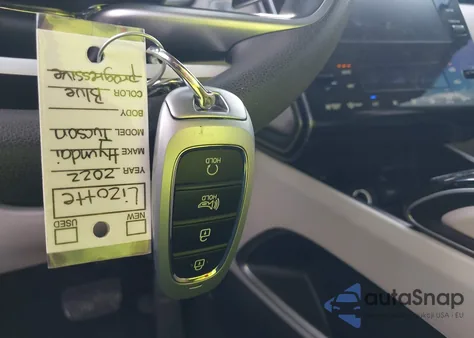 NEW USED
Lizotte
YEAR 2022
MAKE Hyundai
MODEL Tucson
BODY
COLOR Blue
progressive
HOLD
HOLD
autoSnap
USA - EU